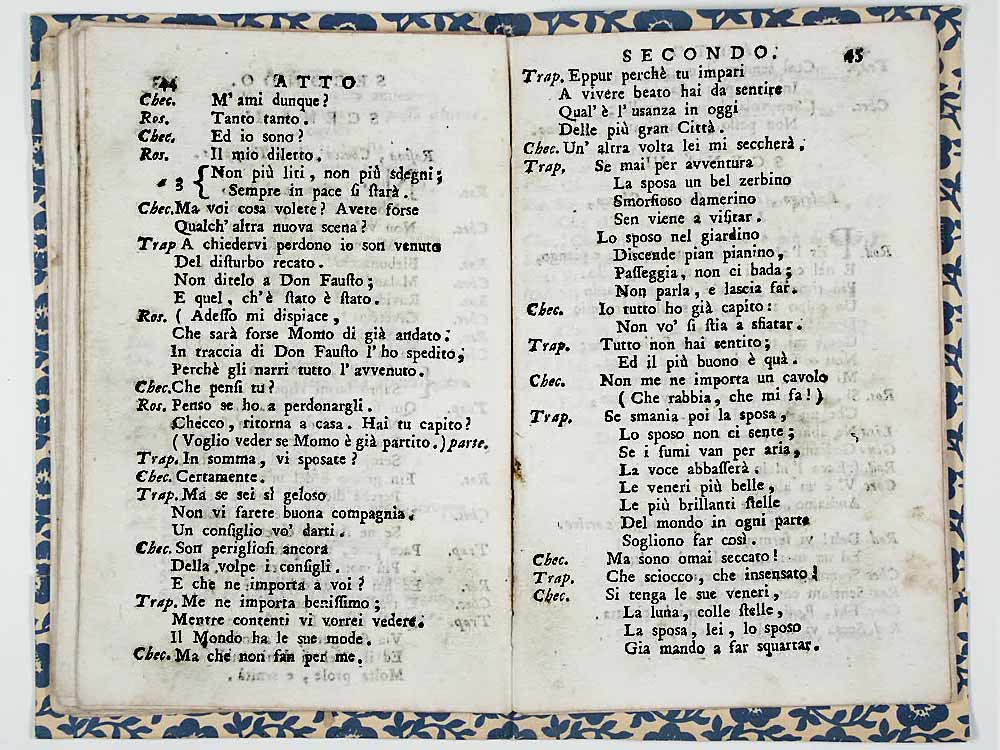 44 ATTO
Chec. M' ami dunque?
Ros. Tanto tanto.
Chec. Ed io sono?
Ros. Il mio diletto.
a 3 { Non più liti, non più sdegni;
Sempre in pace si starà.
Chec. Ma voi cosa volete? Avete forse
Qualch' altra nuova scena?
Trap A chiedervi perdono io son venuto
Del disturbo recato.
Non ditelo a Don Fausto;
E quel, ch'è stato è stato.
Ros. ( Adesso mi dispiace,
Che sarà forse Momo di già andato:
In traccia di Don Fausto l' ho spedito,
Perchè gli narri tutto l' avvenuto.
Chec. Che pensi tu?
Ros. Penso se ho a perdonargli.
Checco, ritorna a casa. Hai tu capito?
( Voglio veder se Momo è già partito.) parte.
Trap. In somma, vi sposate?
Chec. Certamente.
Trap. Ma se sei sì geloso
Non vi farete buona compagnia.
Un consiglio vo' darti.
Chec. Son perigliosi ancora
Della volpe i consigli.
E che ne importa a voi?
Trap. Me ne importa benissimo;
Mentre contenti vi vorrei vedere.
Il Mondo ha le sue mode.
Chec. Ma che non fan per me.
SECONDO. 45
Trap. Eppur perchè tu impari
A vivere beato hai da sentire
Qual' è l' usanza in oggi
Delle più gran Città.
Chec. Un' altra volta lei mi seccherà.
Trap. Se mai per avventura
La sposa un bel zerbino
Smorfioso damerino
Sen viene a visitar.
Lo sposo nel giardino
Discende pian pianino,
Passeggia, non ci bada;
Non parla, e lascia far.
Chec. Io tutto ho già capito:
Non vo' si stia a sfiatar.
Trap. Tutto non hai sentito;
Ed il più buono è quà.
Chec. Non me ne importa un cavolo
( Che rabbia, che mi fa!)
Trap. Se smania poi la sposa,
Lo sposo non ci sente;
Se i fumi van per aria,
La voce abbasserà.
Le veneri più belle,
Le più brillanti stelle
Del mondo in ogni parte
Sogliono far così.
Chec. Ma sono omai seccato!
Trap. Che sciocco, che insensato!
Chec. Si tenga le sue veneri,
La luna, colle stelle,
La sposa, lei, lo sposo
Già mando a far squartar.